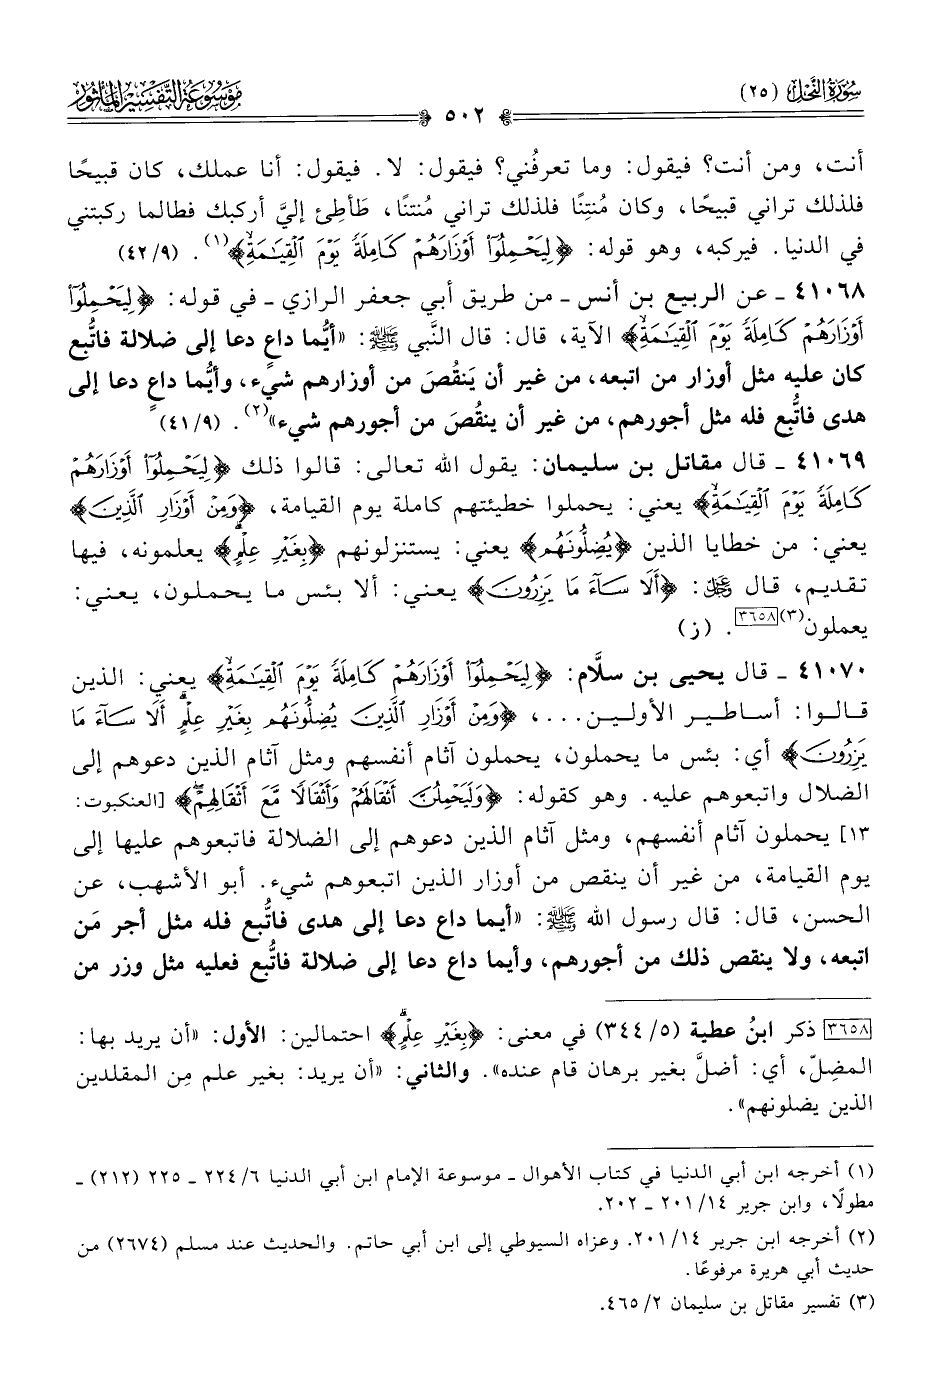 سُورَةُ النَّحْلِ (٢٥)
٥٠٢
مَوْسُوعَةُ التَّفْسِيرِ المَأْثُور
أنت، ومن أنت؟ فيقول: وما تعرفُني؟ فيقول: لا. فيقول: أنا عملك، كان قبيحًا
فلذلك تراني قبيحًا، وكان مُنتِنًا فلذلك تراني مُنتنًا، طَأطِئ إليَّ أركبك فطالما ركبتني
في الدنيا. فيركبه، وهو قوله: ﴿لِيَحْمِلُوٓا۟ أَوْزَارَهُمْ كَامِلَةً يَوْمَ ٱلْقِيَـٰمَةِۙ﴾(١). (٩/٤٢)
٤١٠٦٨ ـ عن الربيع بن أنس ـ من طريق أبي جعفر الرازي ـ في قوله: ﴿لِيَحْمِلُوٓا۟
أَوْزَارَهُمْ كَامِلَةً يَوْمَ ٱلْقِيَـٰمَةِۙ﴾ الآية، قال: قال النَّبي ﷺ: «أيُّما داعٍ دعا إلى ضلالة فاتُّبع
كان عليه مثل أوزار من اتبعه، من غير أن يَنقُصَ من أوزارهم شيء، وأيُّما داعٍ دعا إلى
هدى فاتُّبع فله مثل أجورهم، من غير أن ينقُصَ من أجورهم شيء»(٢). (٩/٤١)
٤١٠٦٩ ـ قال مقاتل بن سليمان: يقول الله تعالى: قالوا ذلك ﴿لِيَحْمِلُوٓا۟ أَوْزَارَهُمْ
كَامِلَةً يَوْمَ ٱلْقِيَـٰمَةِۙ﴾ يعني: يحملوا خطيئتهم كاملة يوم القيامة، ﴿وَمِنْ أَوْزَارِ ٱلَّذِينَ﴾
يعني: من خطايا الذين ﴿يُضِلُّونَهُم﴾ يعني: يستنزلونهم ﴿بِغَيْرِ عِلْمٍۗ﴾ يعلمونه، فيها
تقديم، قال ﷻ: ﴿أَلَا سَآءَ مَا يَزِرُونَ﴾ يعني: ألا بئس ما يحملون، يعني:
يعملون(٣)[٣٦٥٨]. (ز)
٤١٠٧٠ ـ قال يحيى بن سلَّام: ﴿لِيَحْمِلُوٓا۟ أَوْزَارَهُمْ كَامِلَةً يَوْمَ ٱلْقِيَـٰمَةِۙ﴾ يعني: الذين
قالوا: أساطير الأولين...، ﴿وَمِنْ أَوْزَارِ ٱلَّذِينَ يُضِلُّونَهُم بِغَيْرِ عِلْمٍۗ أَلَا سَآءَ مَا
يَزِرُونَ﴾ أي: بئس ما يحملون، يحملون آثام أنفسهم ومثل آثام الذين دعوهم إلى
الضلال واتبعوهم عليه. وهو كقوله: ﴿وَلَيَحْمِلُنَّ أَثْقَالَهُمْ وَأَثْقَالًا مَّعَ أَثْقَالِهِمْۖ﴾ [العنكبوت:
١٣] يحملون آثام أنفسهم، ومثل آثام الذين دعوهم إلى الضلالة فاتبعوهم عليها إلى
يوم القيامة، من غير أن ينقص من أوزار الذين اتبعوهم شيء. أبو الأشهب، عن
الحسن، قال: قال رسول الله ﷺ: «أيما داع دعا إلى هدى فاتُّبع فله مثل أجر مَن
اتبعه، ولا ينقص ذلك من أجورهم، وأيما داع دعا إلى ضلالة فاتُّبع فعليه مثل وزر من
[٣٦٥٨] ذكر ابنُ عطية (٥/ ٣٤٤) في معنى: ﴿بِغَيْرِ عِلْمٍۗ﴾ احتمالين: الأول: «أن يريد بها:
المضِلّ، أي: أضلَّ بغير برهان قام عنده». والثاني: «أن يريد: بغير علم مِن المقلدين
الذين يضلونهم».
(١) أخرجه ابن أبي الدنيا في كتاب الأهوال ـ موسوعة الإمام ابن أبي الدنيا ٦/ ٢٢٤ ـ ٢٢٥ (٢١٢) ـ
مطولًا، وابن جرير ١٤/ ٢٠١ ـ ٢٠٢.
(٢) أخرجه ابن جرير ١٤/ ٢٠١. وعزاه السيوطي إلى ابن أبي حاتم. والحديث عند مسلم (٢٦٧٤) من
حديث أبي هريرة مرفوعًا.
(٣) تفسير مقاتل بن سليمان ٢/ ٤٦٥.